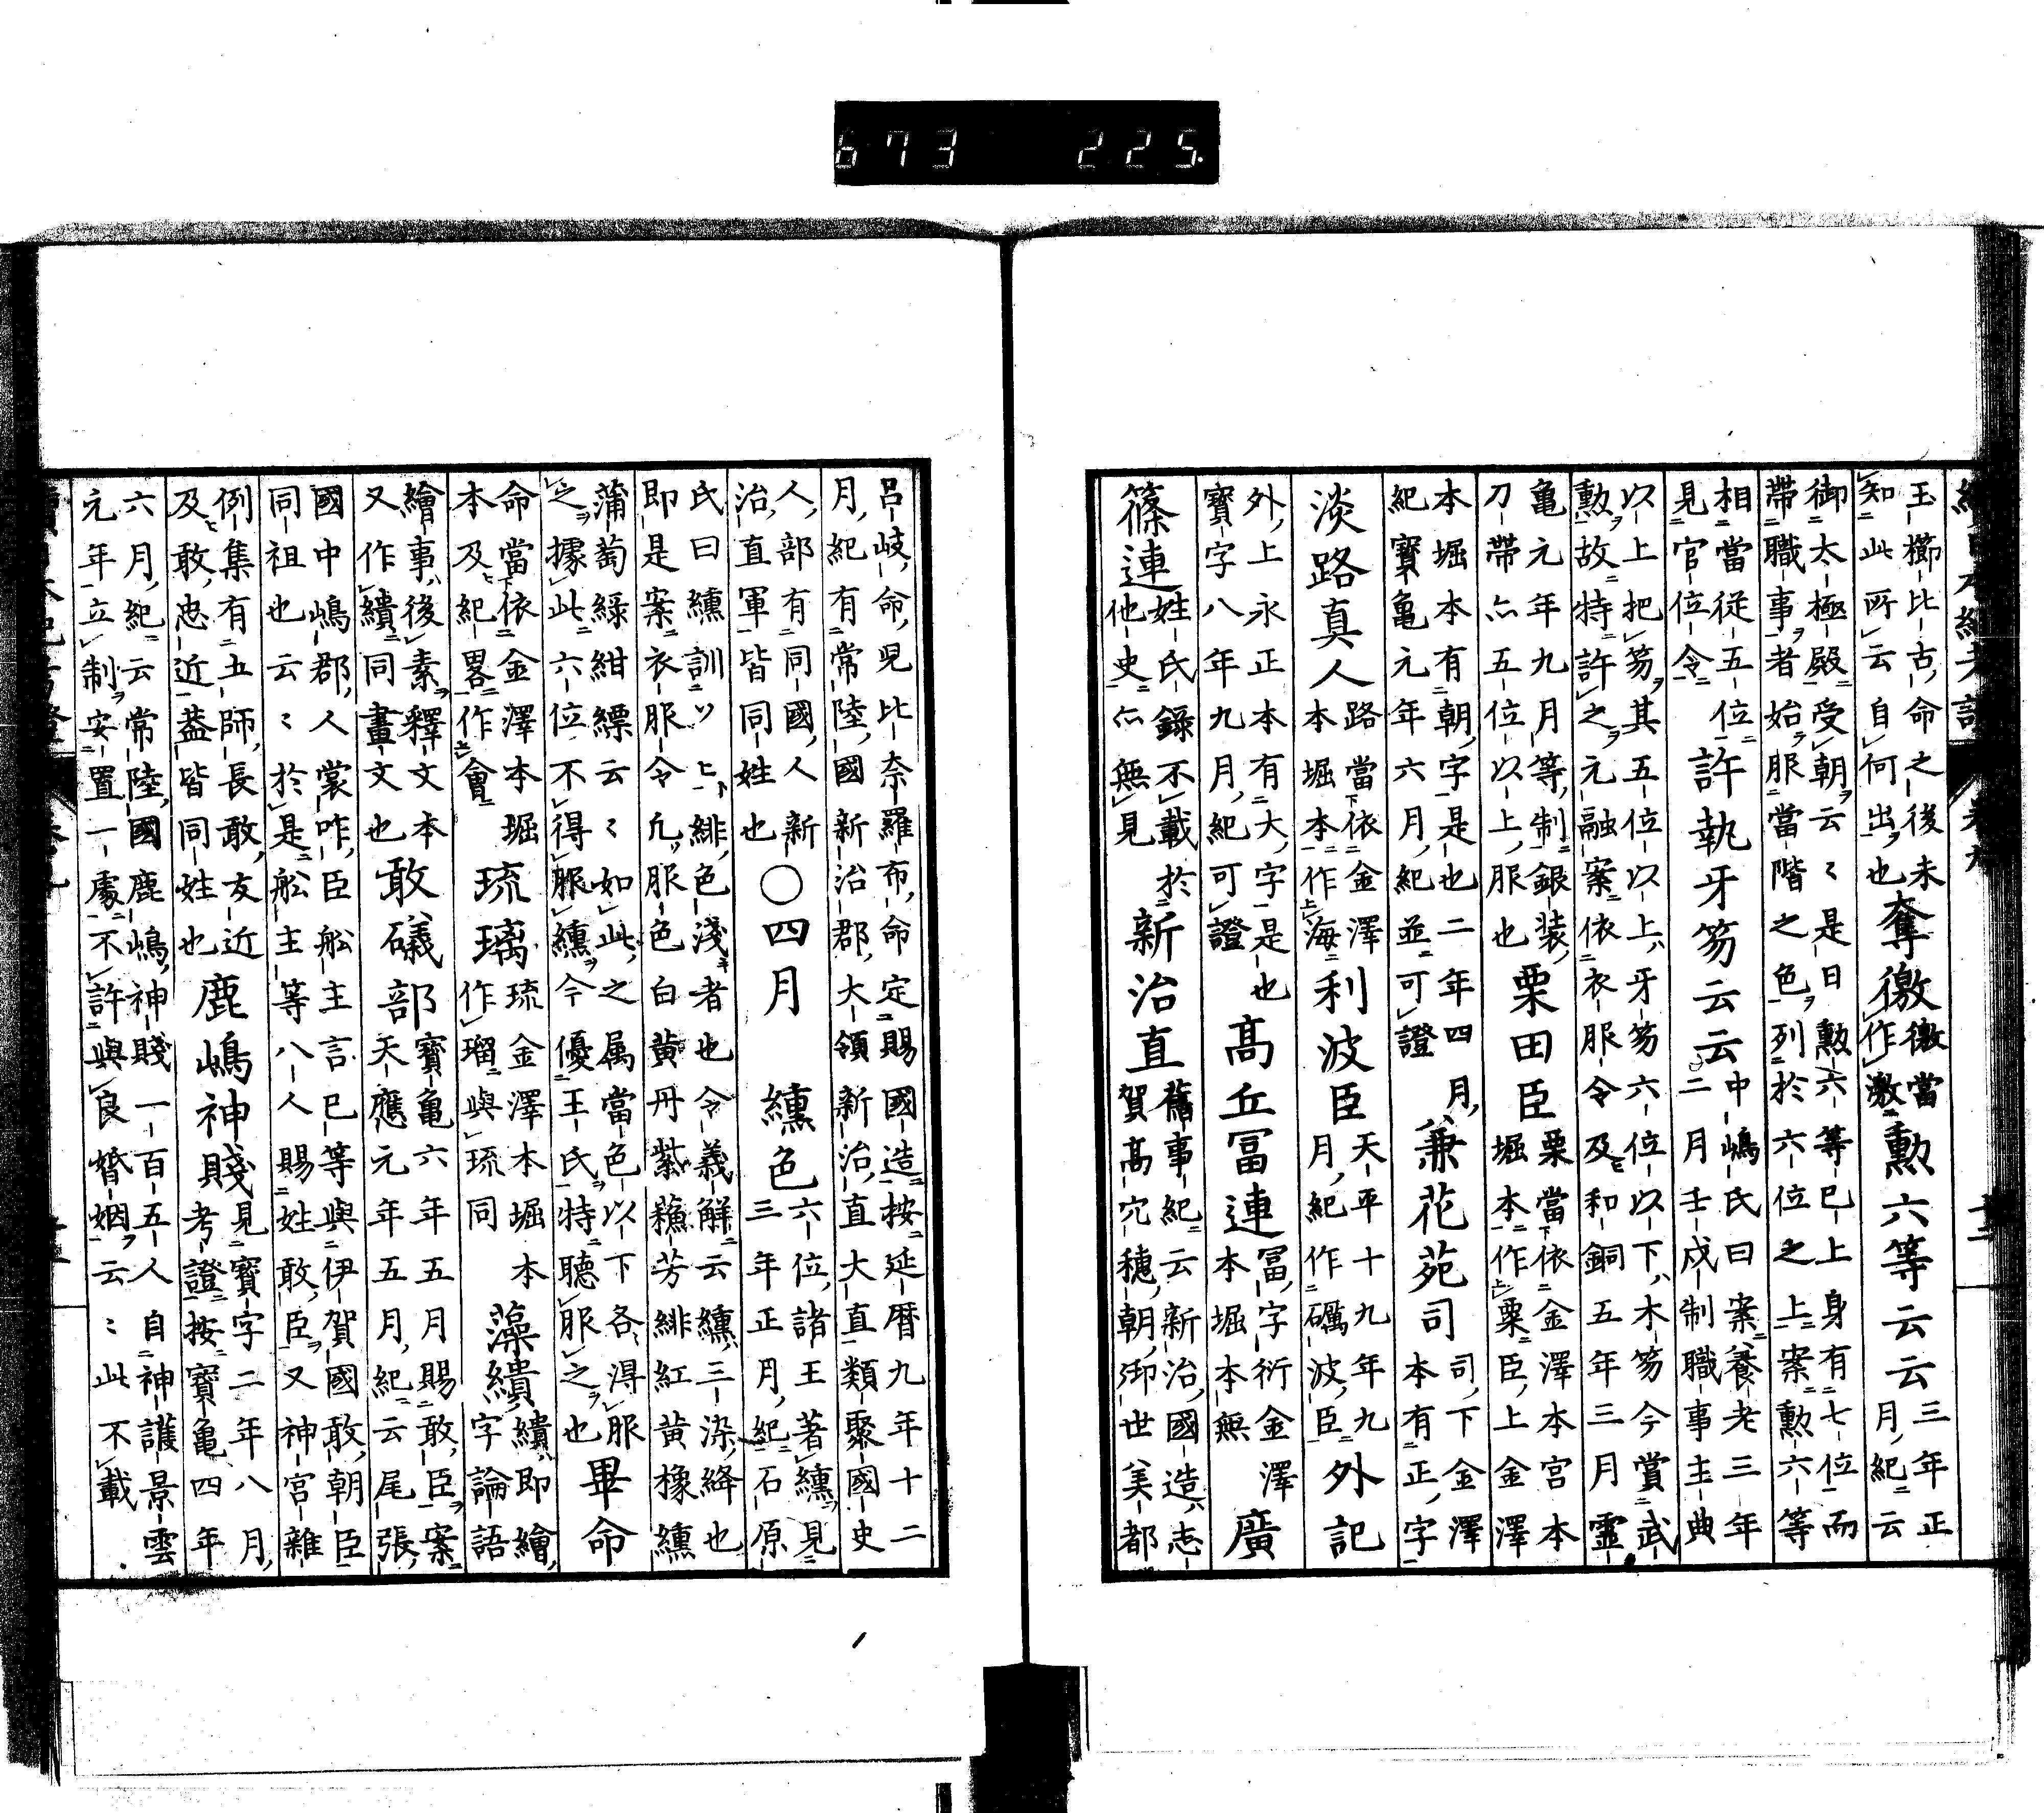 673 225
玉櫛比古命之後未
知此所云自何出也奪徼徼當作激勲六等云云三年正月紀云
御太極殿受朝云〻是日勲六等已上身有七位而
帶職事者始服當階之色列於六位之上案勲六等
相當從五位
見官位令許執牙笏云云中嶋氏曰案養老三年二月壬戌制職事主典
以上把笏其五位以上牙笏六位以下木笏今賞武
勲故特許之元融案依衣服令及和銅五年三月靈
亀元年九月等制銀装
刀帶亦五位以上服也栗田臣栗當依金澤本宮本堀本作粟臣上金澤
本堀本有朝字是也二年四月
紀寶亀元年六月紀並可證兼花苑司司下金澤本有正字
淡路真人路當依金澤本堀本作海利波臣天平十九年九月紀作礪波臣外記
外上永正本有大字是也
寶字八年九月紀可證髙丘冨連冨字衍金澤本堀本無廣
篠連姓氏錄不載於他史亦無見新治直舊事紀云新治國造志賀髙穴穂朝御世美都
呂岐命兒比奈羅布命定賜國造按延暦九年十二
月紀有常陸國新治郡大領新治直大直類聚國史
人部有同國人新
治直軍皆同姓也〇四月　纁色六位諸王著纁見三年正月紀石原
氏曰纁訓ソヒ緋色淺者也令義解云纁三染絳也
即是案衣服令凢服色白黄丹紫蘓芳緋紅黄橡纁
蒲萄綠紺縹云〻如此之属當色以下各得服
之據此六位不得服纁今優王氏特聽服之也畢命
命當依金澤本堀
本及紀畧作會琉璃琉金澤本堀本作瑠與琉同藻繢繢即繪字論語
繪事後素釋文本
又作繢同畫文也敢礒部寶亀六年五月賜敢臣案天應元年五月紀云尾張
國中嶋郡人裳咋臣舩主言已等與伊賀國敢朝臣
同祖也云〻於是舩主等八人賜姓敢臣又神宮雜
例集有五師長敢友近
及敢忠近葢皆同姓也鹿嶋神賤見寶字二年八月考證按寶亀四年
六月紀云常陸國鹿嶋神賤一百五人自神護景雲
元年立制安置一處不許與良婚姻云〻此不載